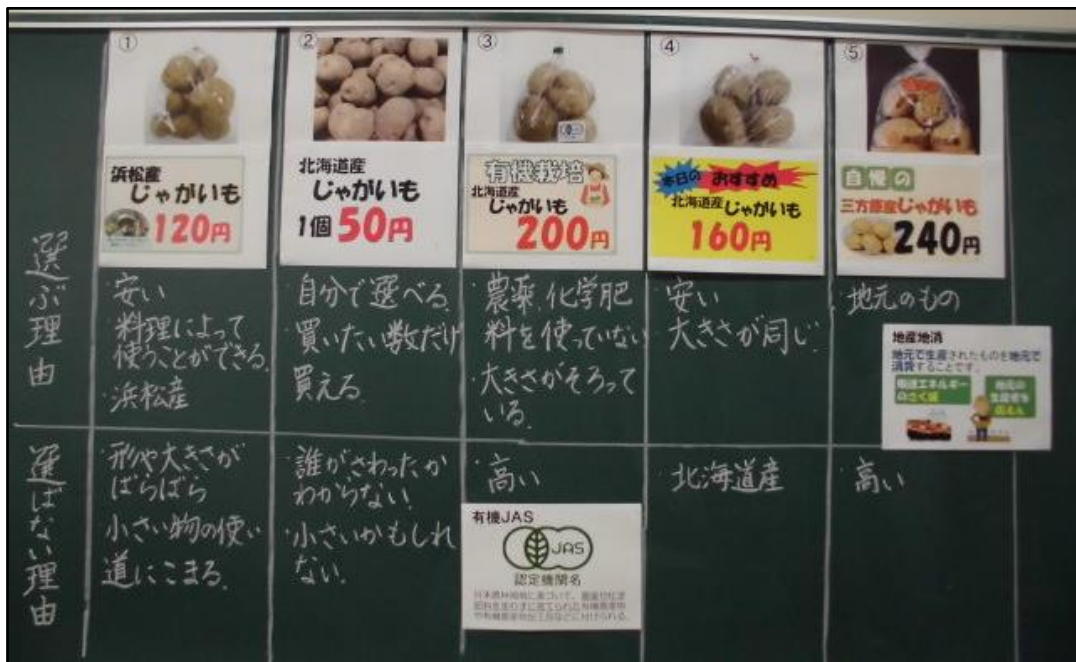 ①
浜松産
じゃがいも
120円
②
北海道産
じゃがいも
1個50円
③
有機栽培
北海道産
じゃがいも
200円
④
本日の おすすめ
北海道産じゃがいも
160円
⑤
自慢の
三方原産じゃがいも
240円
選ぶ理由
・安い
・料理によって
使うことができる。
・浜松産
・自分で選べる。
・買いたい数だけ
買える。
・農薬、化学肥
料を使っていない
・大きさがそろって
いる。
・安い
・大きさが同じ。
・地元のもの
地産地消
地元で生産されたものを地元で
消費することです。
輸送エネルギー
のさく減
地元の
生産者を
応えん
選ばない理由
・形や大きさが
ばらばら
・小さい物の使い
道にこまる。
・誰がさわったか
わからない。
・小さいかもしれ
ない。
・高い
有機JAS
JAS
認定機関名
・北海道産
・高い